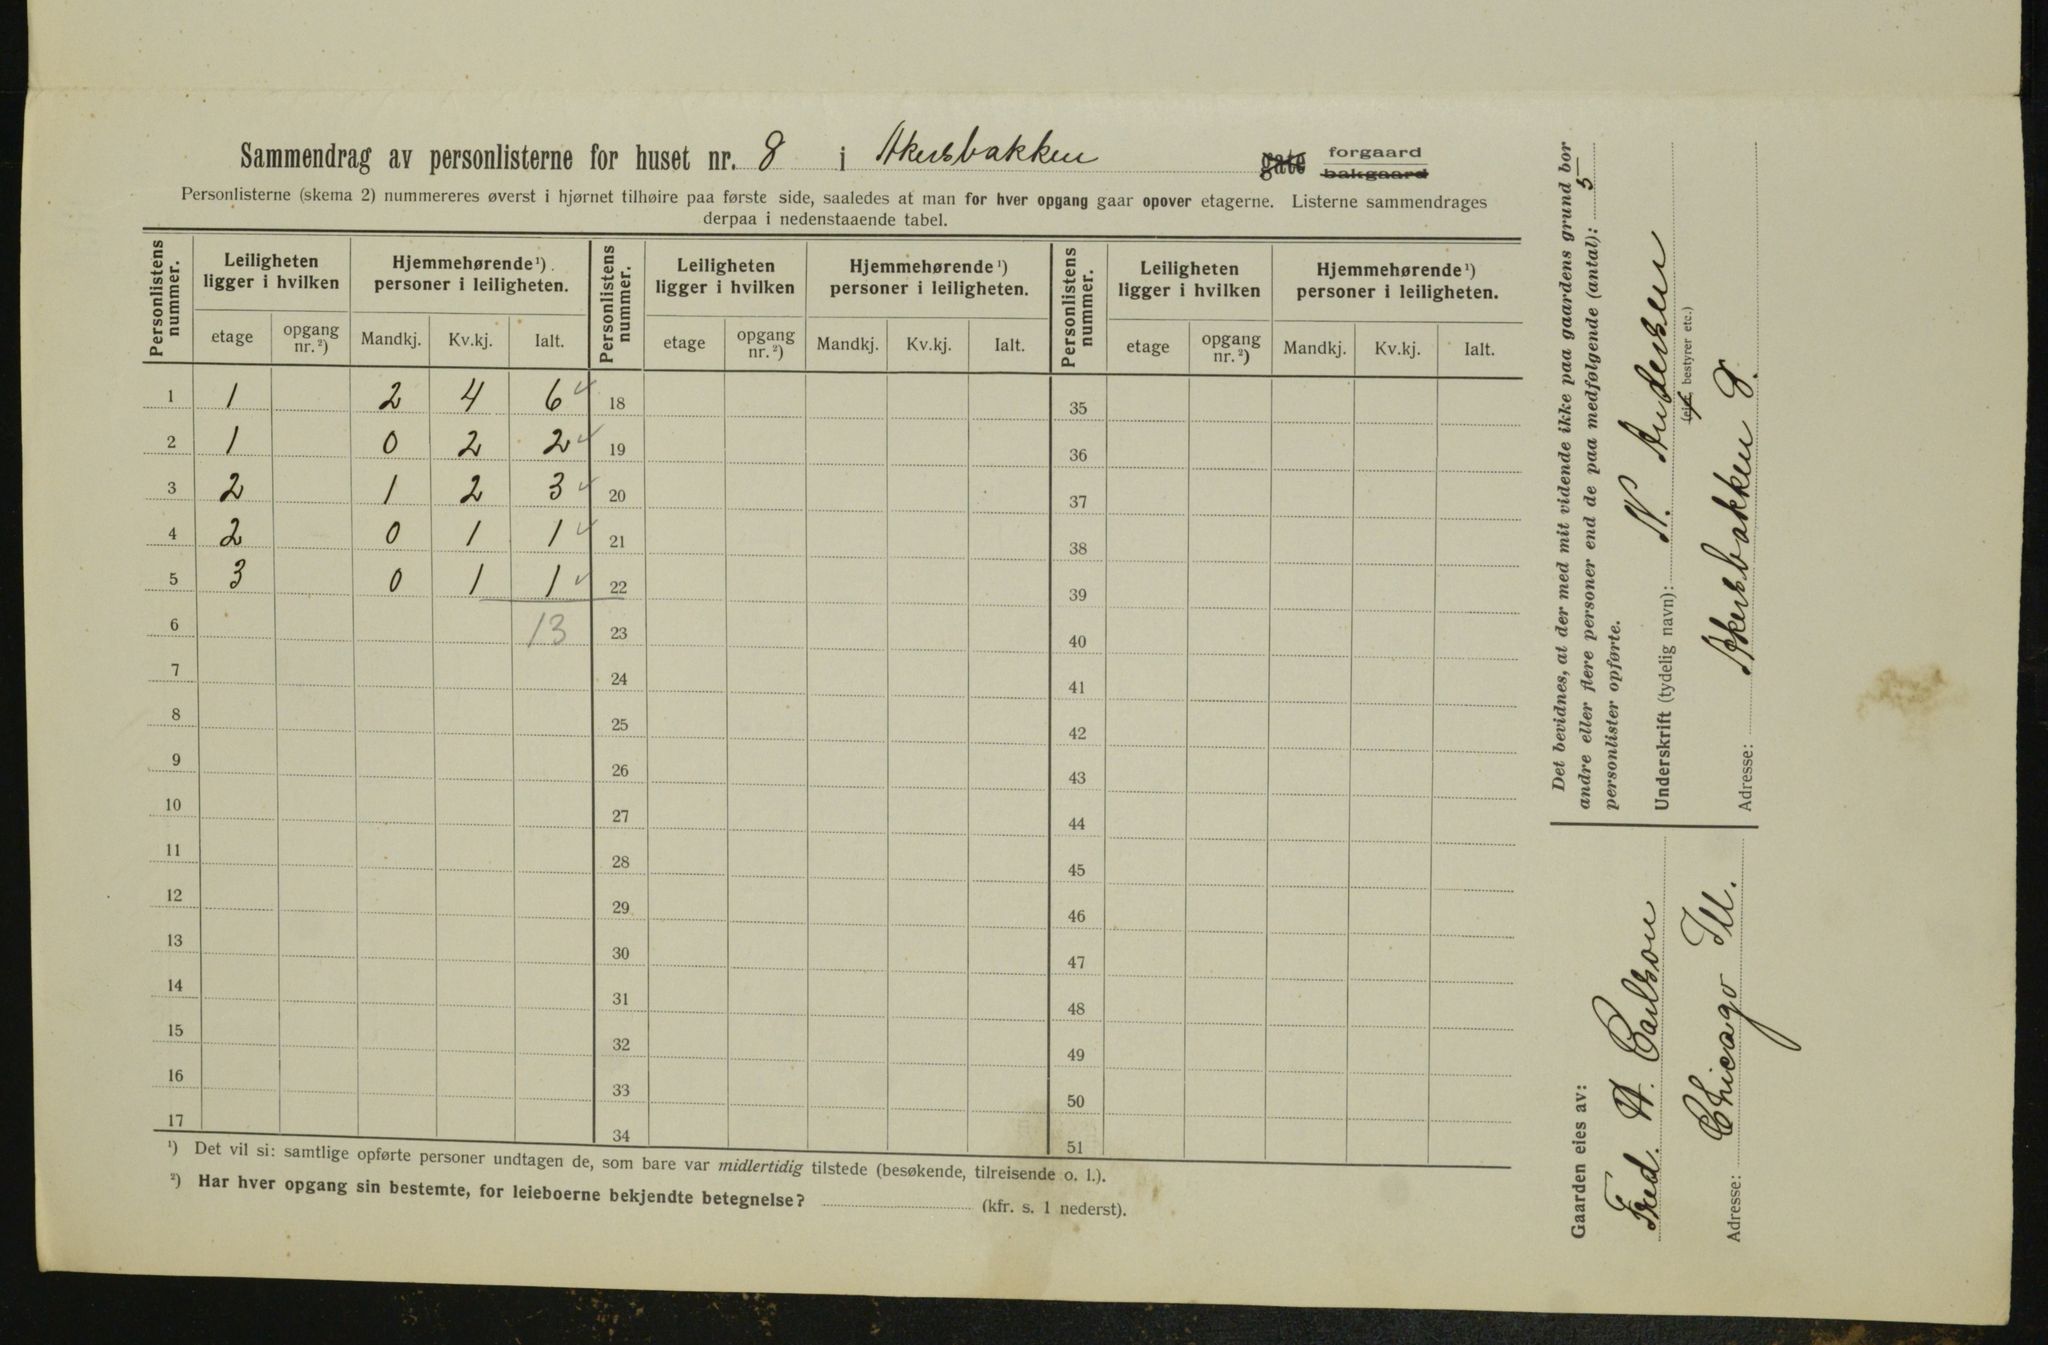 Sammendrag av personlisterne for huset nr. 8 i Akersbakken gate forgaard bakgaard
Personlisterne (skema 2) nummereres øverst i hjørnet tilhøire paa første side, saaledes at man for hver opgang gaar opover etagerne. Listerne sammendrages
derpaa i nedenstaaende tabel.
Personlistens nummer. Leiligheten ligger i hvilken Hjemmehørende ¹) personer i leiligheten. Personlistens nummer. Leiligheten ligger i hvilken Hjemmehørende ¹) personer i leiligheten. Personlistens nummer. Leiligheten ligger i hvilken Hjemmehørende ¹) personer i leiligheten.
etage opgang nr. ²) Mandkj. Kv.kj. Ialt. etage opgang nr. ²) Mandkj. Kv.kj. Ialt. etage opgang nr. ²) Mandkj. Kv.kj. Ialt.
1 1 2 4 6 ✓ 18 35
2 1 0 2 2 ✓ 19 36
3 2 1 2 3 ✓ 20 37
4 2 0 1 1 ✓ 21 38
5 3 0 1 1 ✓ 22 39
6 13 23 40
7 24 41
8 25 42
9 26 43
10 27 44
11 28 45
12 29 46
13 30 47
14 31 48
15 32 49
16 33 50
17 34 51
¹) Det vil si: samtlige opførte personer undtagen de, som bare var midlertidig tilstede (besøkende, tilreisende o. l.).
²) Har hver opgang sin bestemte, for leieboerne bekjendte betegnelse? (kfr. s. 1 nederst).
Det bevidnes, at der med mit vidende ikke paa gaardens grund bor
andre eller flere personer end de paa medfølgende (antal): 5
personlister opførte.
Underskrift (tydelig navn): N. Andersen
(eier, bestyrer etc.)
Adresse: Akersbakken 8.
Gaarden eies av:
Fred. A. Carlson
Adresse: Chicago Ill.